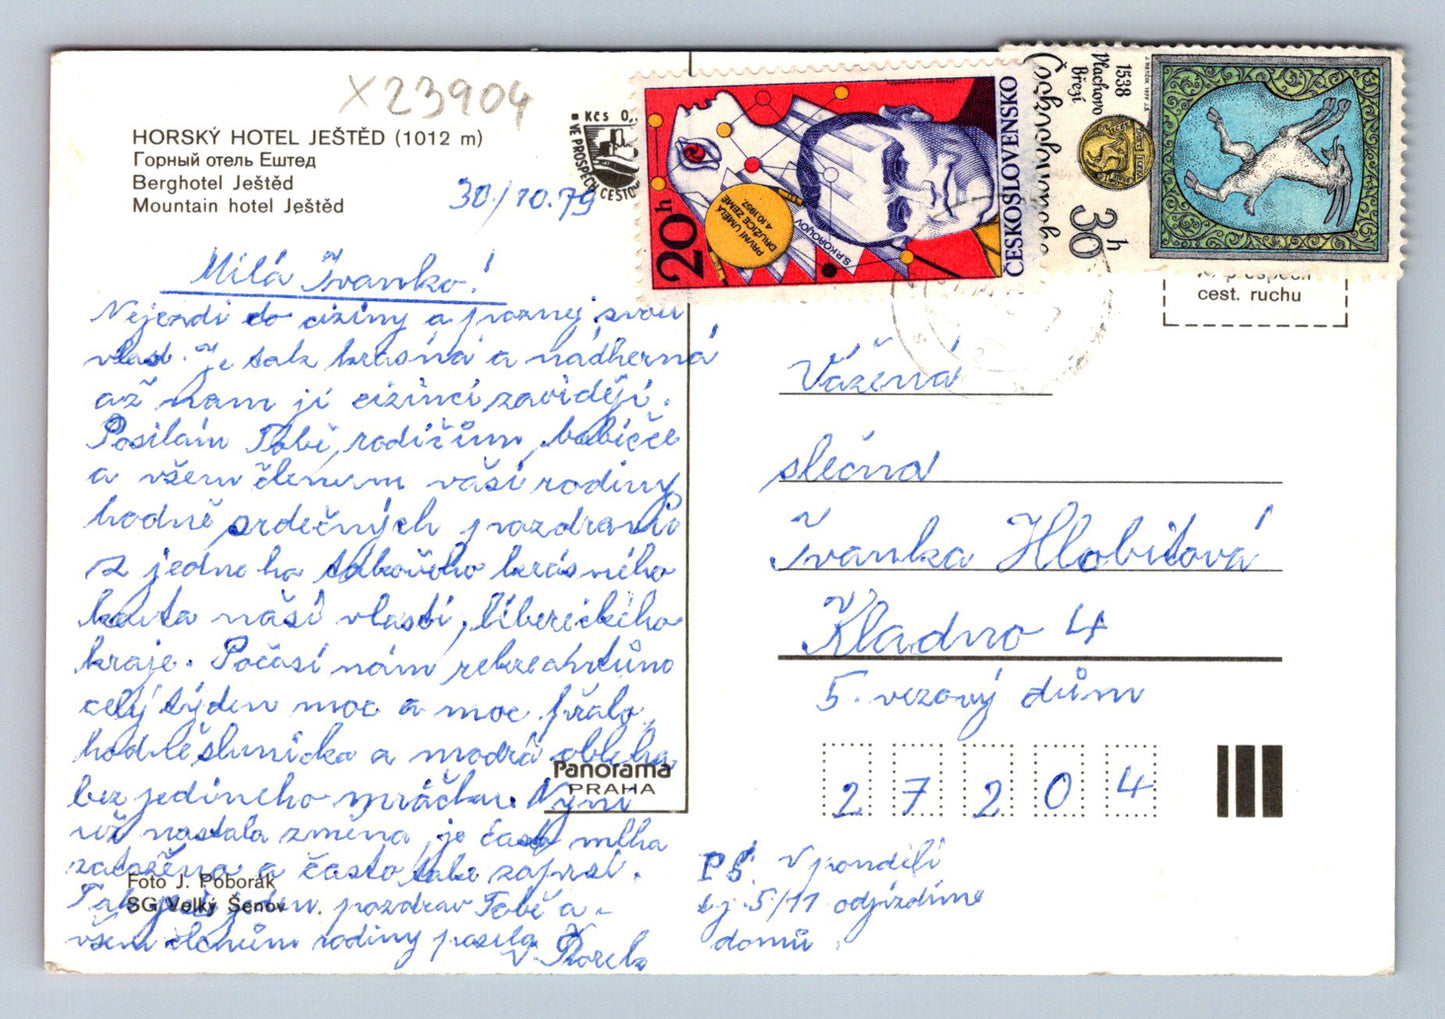 X23904
HORSKÝ HOTEL JEŠTĚD (1012 m)
Горный отель Ештед
Berghotel Ještěd
Mountain hotel Ještěd
30/10.79
Milá Ivanko!
Nejezdi do ciziny a poznej svou
vlast. Je tak krásná a nádherná
až nam jí cizinci zavidějí.
Posílám Tobě, rodičům, babičce
a všem členum vaší rodiny
hodně srdečných pozdravů
z jednoho takového krásného
kouta naší vlasti, libereckého
kraje. Počasí nám rekreantům
celý týden moc a moc přálo,
hodně sluníčka a modrá obloha
bez jediného mráčku. Nyní
už nastala změna, je časta mlha
zataženo a často také zaprší.
Tak jeden pozdrav Tobě a
všem členům rodiny posílá
Panorama
PRAHA
Foto J. Poborák
SG Velký Šenov
Kčs 0,
VE PROSPĚCH CESTO
20h
PRVNÍ UMĚLÁ
DRUŽICE ZEMĚ
4.10.1957
S.P.KOROLJOV
ČESKOSLOVENSKO
Československo
1538
Vlachovo
Březí
30h
cest. ruchu
Vážená
slečna
Ivanka Hlobilová
Kladno 4
5. vezový dům
27204
PS V pondělí
tj. 5/11 odjíždíme
domů